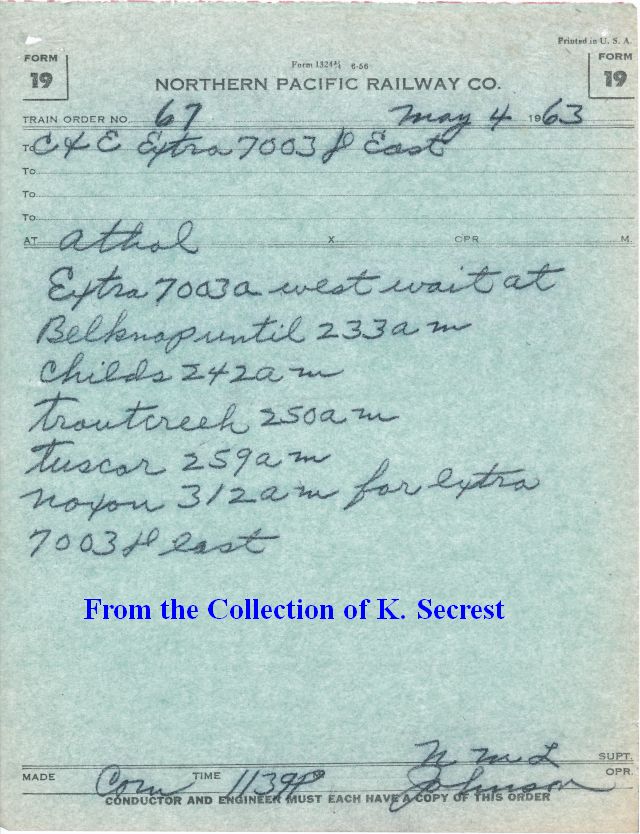 Printed in U. S. A.
FORM 19
Form 1324¾ 6-56
FORM 19
NORTHERN PACIFIC RAILWAY CO.
TRAIN ORDER NO. 67 May 4 1963
To C & E Extra 7003 D East
To
To
To
AT Athol X OPR M.
Extra 7003a west wait at
Belknap until 233 am
Childs 242 am
troutcreek 250 am
tuscor 259 am
noxon 312 am for extra
7003 D east
From the Collection of K. Secrest
N M L SUPT.
MADE Com TIME 1139P Johnson OPR.
CONDUCTOR AND ENGINEER MUST EACH HAVE A COPY OF THIS ORDER